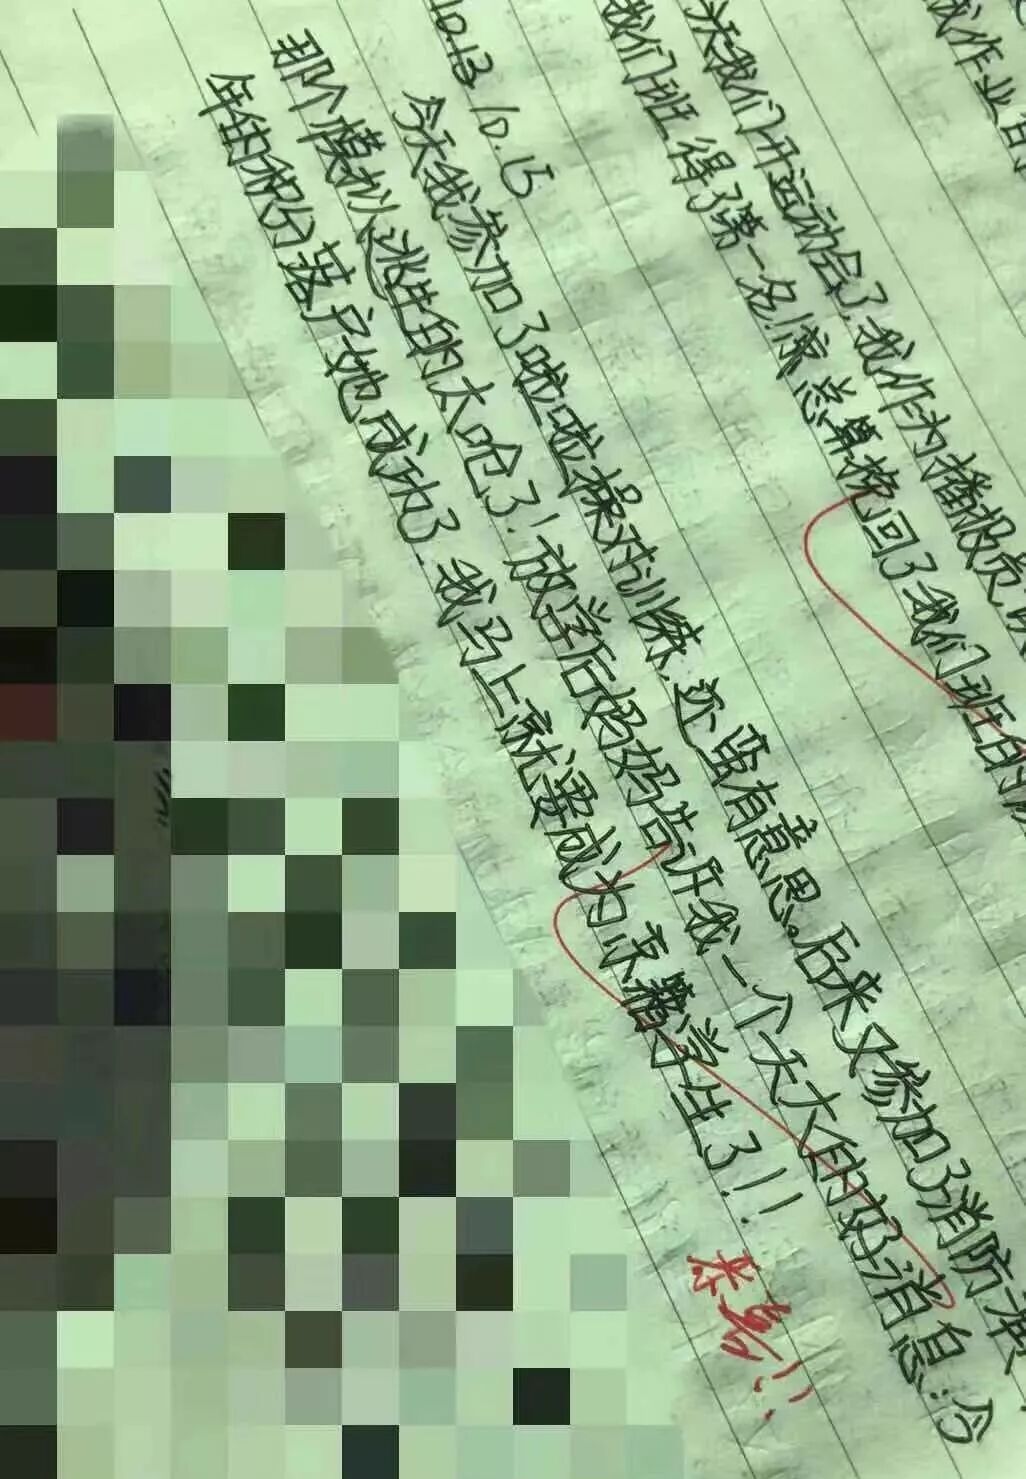 我作业
天我们开运动会了,我作为播报员
我们班得了第一名!总算挽回了我们班的
10.13 10.15
今天我参加了啦啦操对训练,还蛮有意思。后来又参加了消防演
那个模拟逃生的太呛了!放学后妈妈告诉我一个天大的好消息:今
年的积分落户她成功了.我马上就要成为京籍学生了!!!
恭喜!!